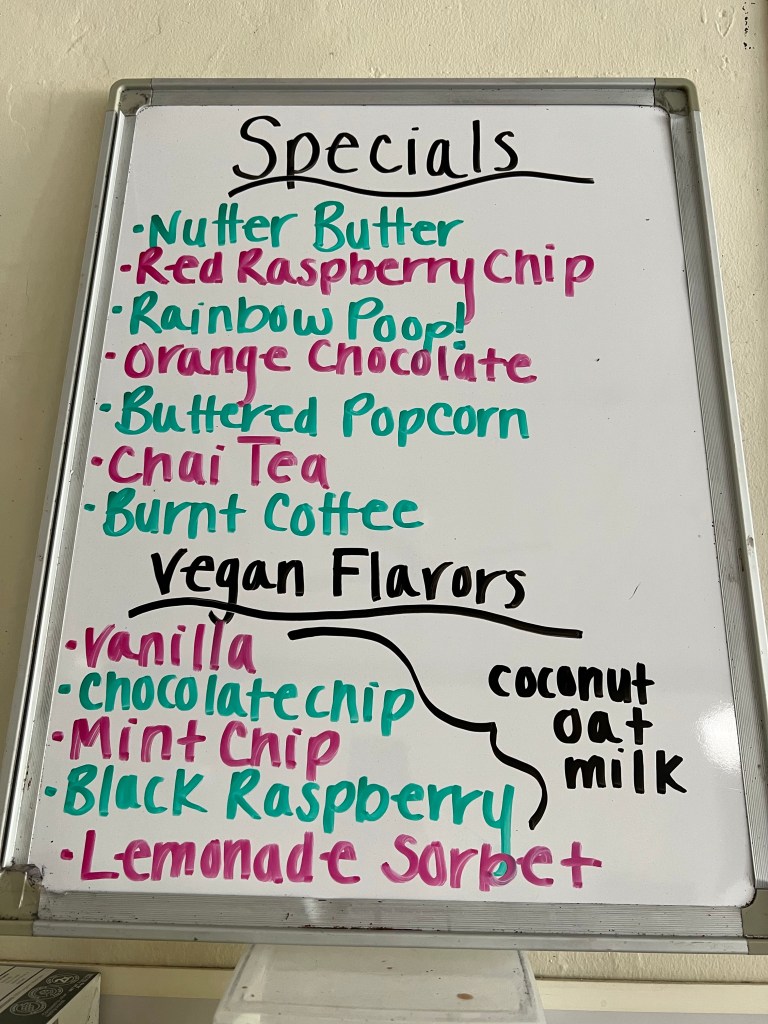 Specials
·Nutter Butter
·Red Raspberry Chip
·Rainbow Poop!
·Orange Chocolate
·Buttered Popcorn
·Chai Tea
·Burnt Coffee
Vegan Flavors
·Vanilla
·Chocolate chip
·Mint Chip
·Black Raspberry
coconut
oat
milk
·Lemonade Sorbet